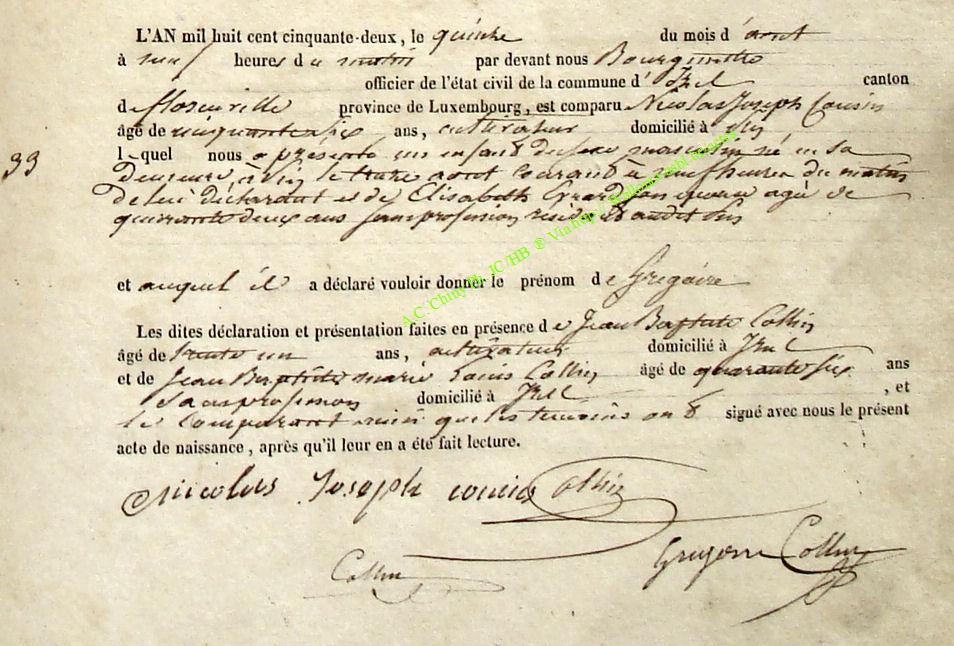 L'AN mil huit cent cinquante-deux, le quinze du mois d'aout
à neuf heures du matin par devant nous Bourgmestre
officier de l'état civil de la commune d'Izel canton
de florenville province de Luxembourg, est comparu Nicolas Joseph Cousin
âgé de cinquante six ans, cultivateur domicilié à
33
lequel nous a présenté un enfant du sexe masculin né en sa
demeure à le treize aout courant à neuf heures du matin
de lui déclarant et de Elisabeth Gérard son épouse agée de
quarante deux ans sans profession audit
et auquel il a déclaré vouloir donner le prénom de Grégoire
Les dites déclaration et présentation faites en présence de Jean Baptiste Collin
âgé de trente un ans, cultivateur domicilié à Izel
et de Jean Baptiste marie Louis Collin âgé de quarante six ans
sans profession domicilié à Izel , et
le comparant ainsi que les temoins ont signé avec nous le présent
acte de naissance, après qu'il leur en a été fait lecture.
nicolas Joseph cousin Collin
Collin Gregoire Collin
A.C. Chiny Ph. JC/HB ® Via